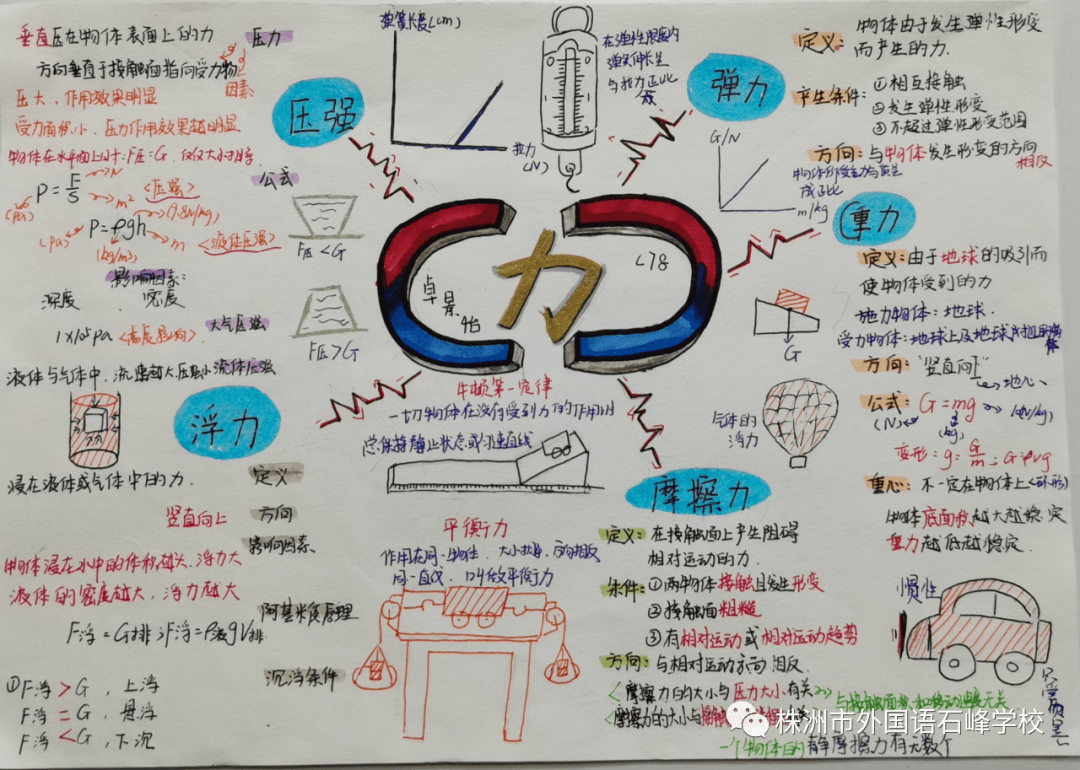 垂直压在物体表面上的力
压力
方向垂直于接触面指向受力物
因素:
压大,作用效果明显
受力面积小,压力作用效果越明显
物体在水平面上时:F压=G,仅仅大小相等
P=F/S
N
m²
(pa)
<压强>
公式
P=ρgh
(9.8N/kg)
(pa)
(kg/m³)
m
<液体压强>
影响因素:
深度
密度
1×10⁵pa
大气压强
流体压强
压强
F压<G
F压>G
弹簧长度(cm)
拉力(N)
在弹性限度内
弹簧伸长量
与拉力正比
弹力
定义:
物体由于发生弹性形变
而产生的力.
产生条件:
①相互接触
②发生弹性形变
③不超过弹性形变范围
方向:与物体发生形变的方向
相反
G/N
m/kg
成正比
重力
定义:由于地球的吸引而
使物体受到的力
施力物体:地球.
方向:"竖直向下"
地心
公式:G=mg
(N)
(kg)
变形:g=G/m;G=ρvg
重心:不一定在物体上<环形>
物体底面积越大越稳定
重力越低越稳定.
G
力
卓
景
怡
C78
牛顿第一定律
一切物体在没有受到力的作用时
总保持静止状态或匀速直线
浮力
浸在液体或气体中的力.
定义
竖直向上
方向
影响因素
物体浸在水中的体积越大,浮力大
液体的密度越大,浮力越大
阿基米德原理
F浮=G排;F浮=ρ液gV排
沉浮条件
①F浮>G,上浮
F浮=G,悬浮
F浮<G,下沉
平衡力
作用在同一物体,大小相等,方向相反
同一直线,叫做平衡力
气体的
浮力
摩擦力
定义:在接触面上产生阻碍
相对运动的力.
条件:①两物体接触且发生形变
②接触面粗糙
③有相对运动或相对运动趋势
方向:与相对运动方向相反.
<摩擦力的大小与压力大小有关>
与接触面积和移动速度无关
一个物体的静摩擦力有无数个
惯性
只受质量
株洲市外国语石峰学校